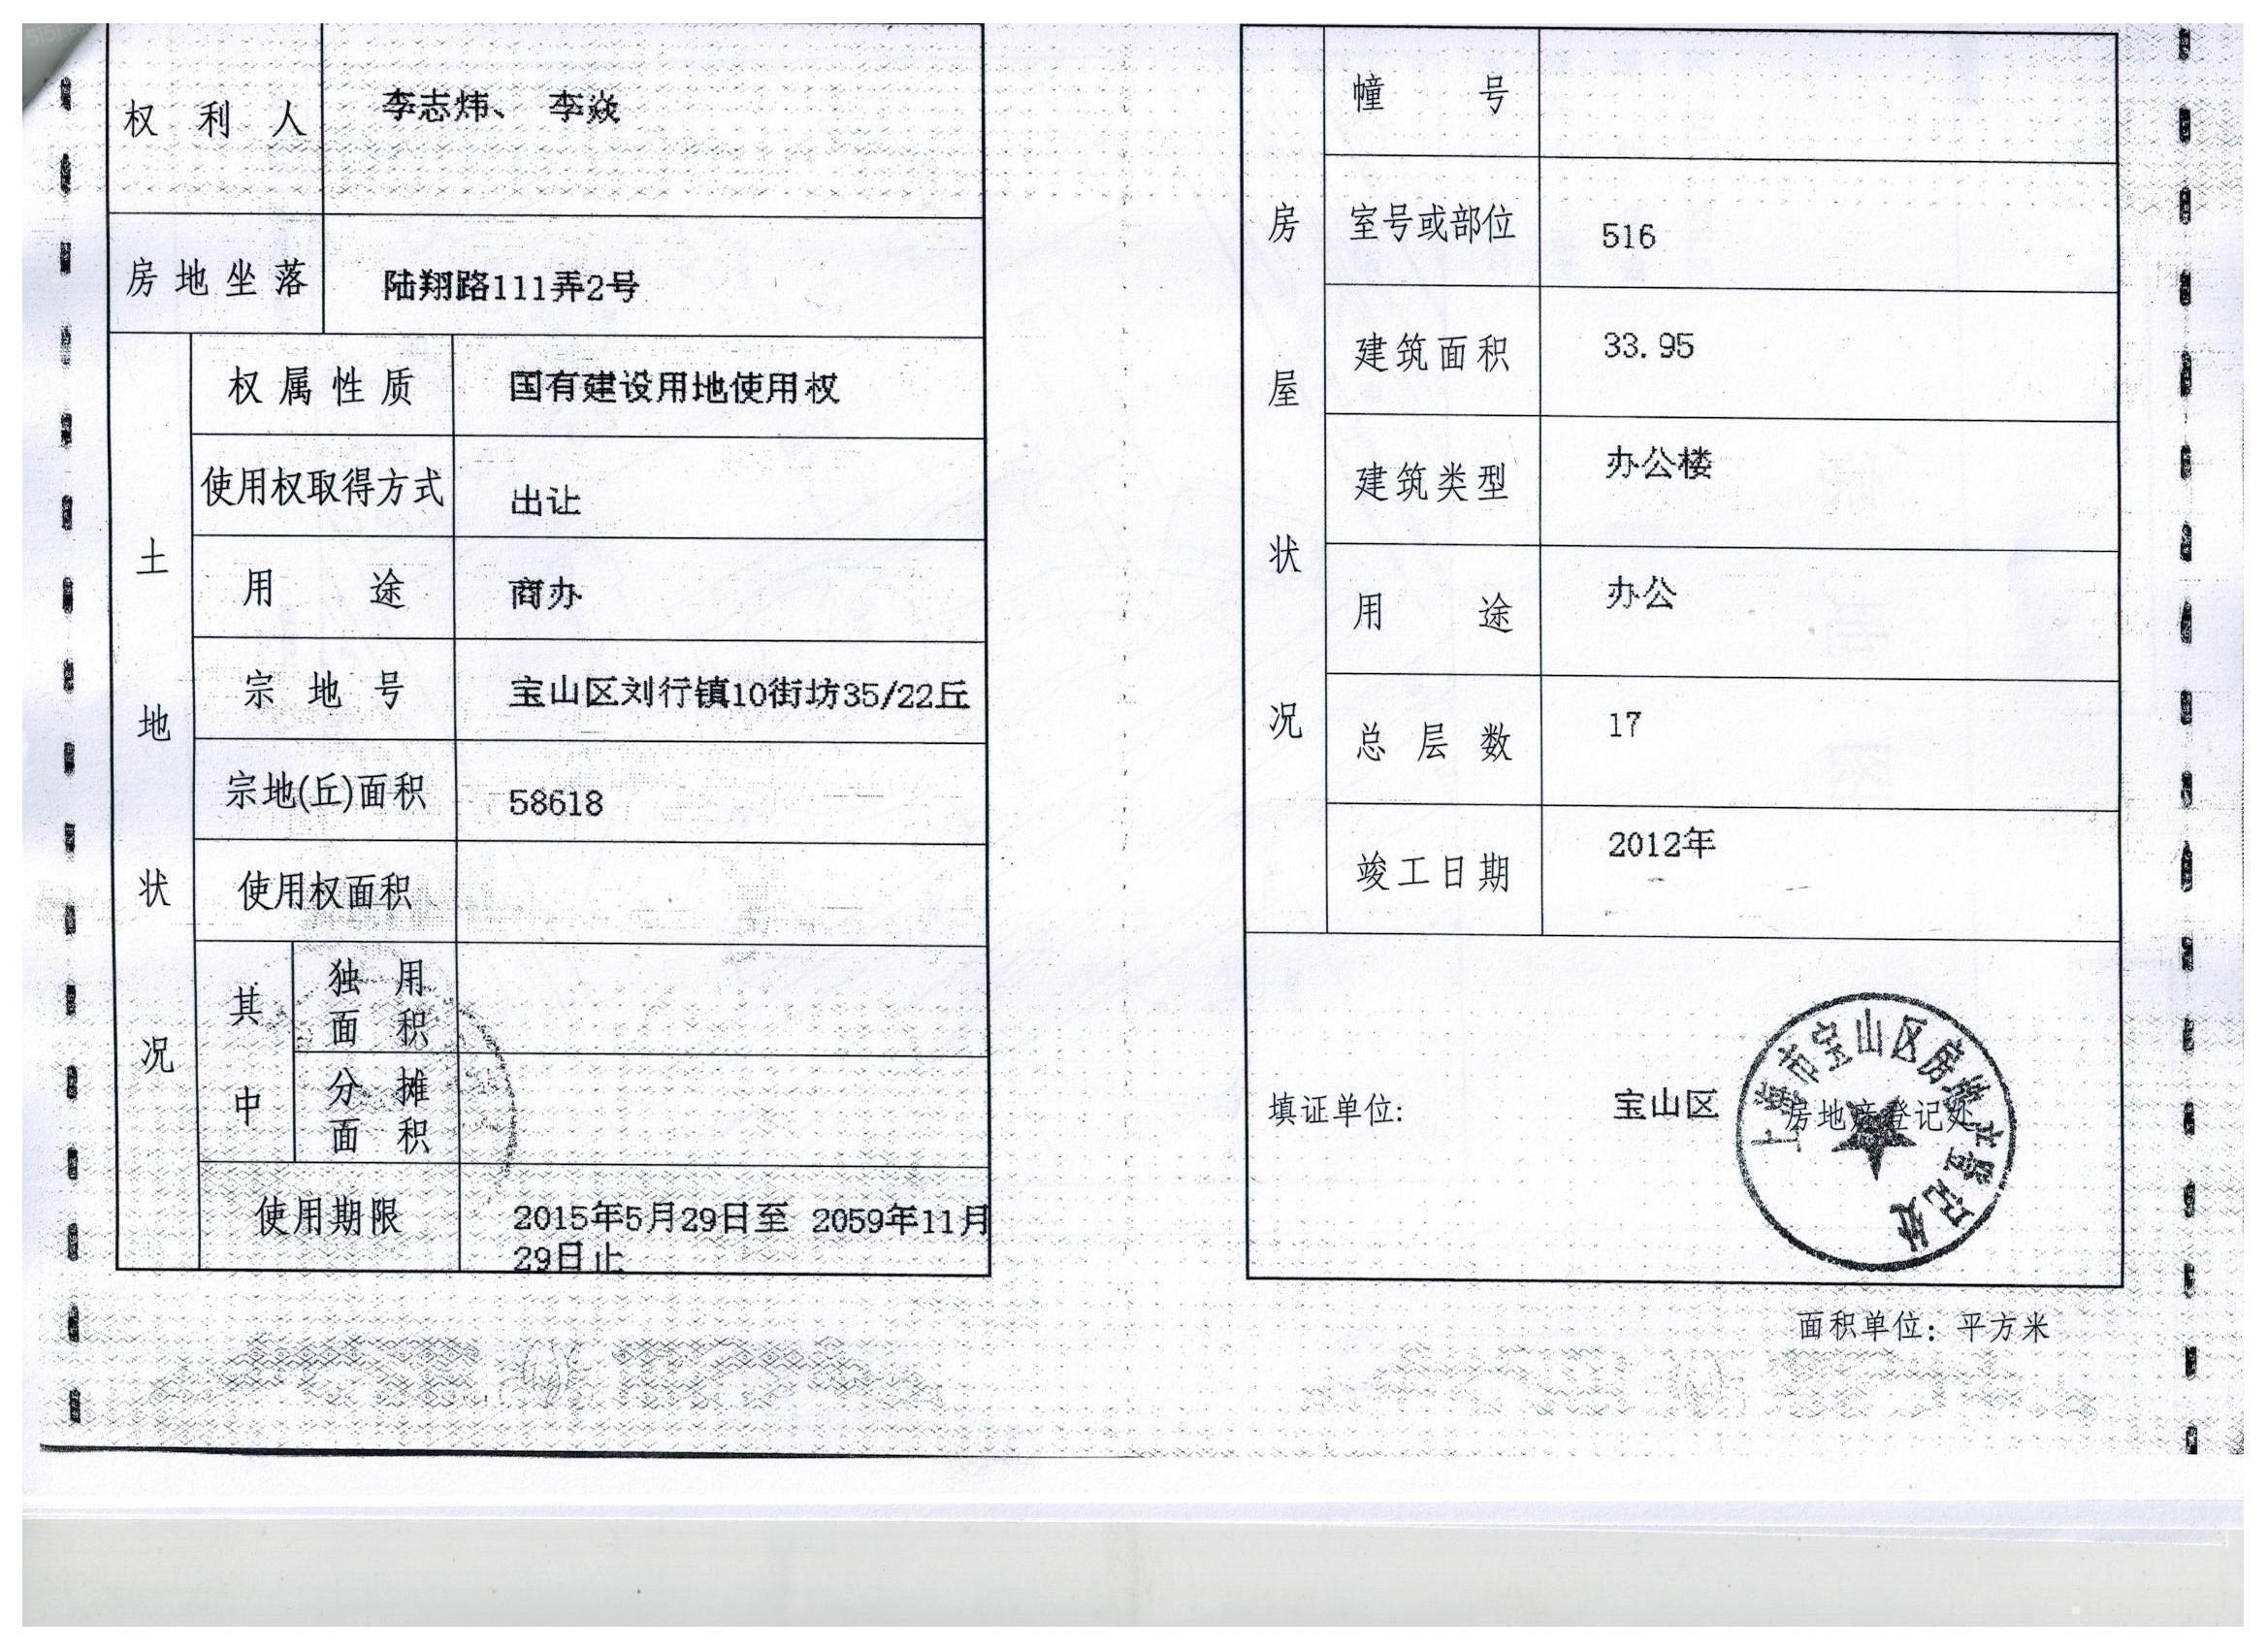 权利人 李志炜、 李焱
房地坐落 陆翔路111弄2号
土地状况
权属性质 国有建设用地使用权
使用权取得方式 出让
用途 商办
宗地号 宝山区刘行镇10街坊35/22丘
宗地(丘)面积 58618
使用权面积
其中
独用面积
分摊面积
使用期限 2015年5月29日至 2059年11月
29日止
房屋状况
幢号
室号或部位 516
建筑面积 33.95
建筑类型 办公楼
用途 办公
总层数 17
竣工日期 2012年
填证单位: 宝山区 房地产登记处
上海市宝山区房地产登记处
面积单位: 平方米